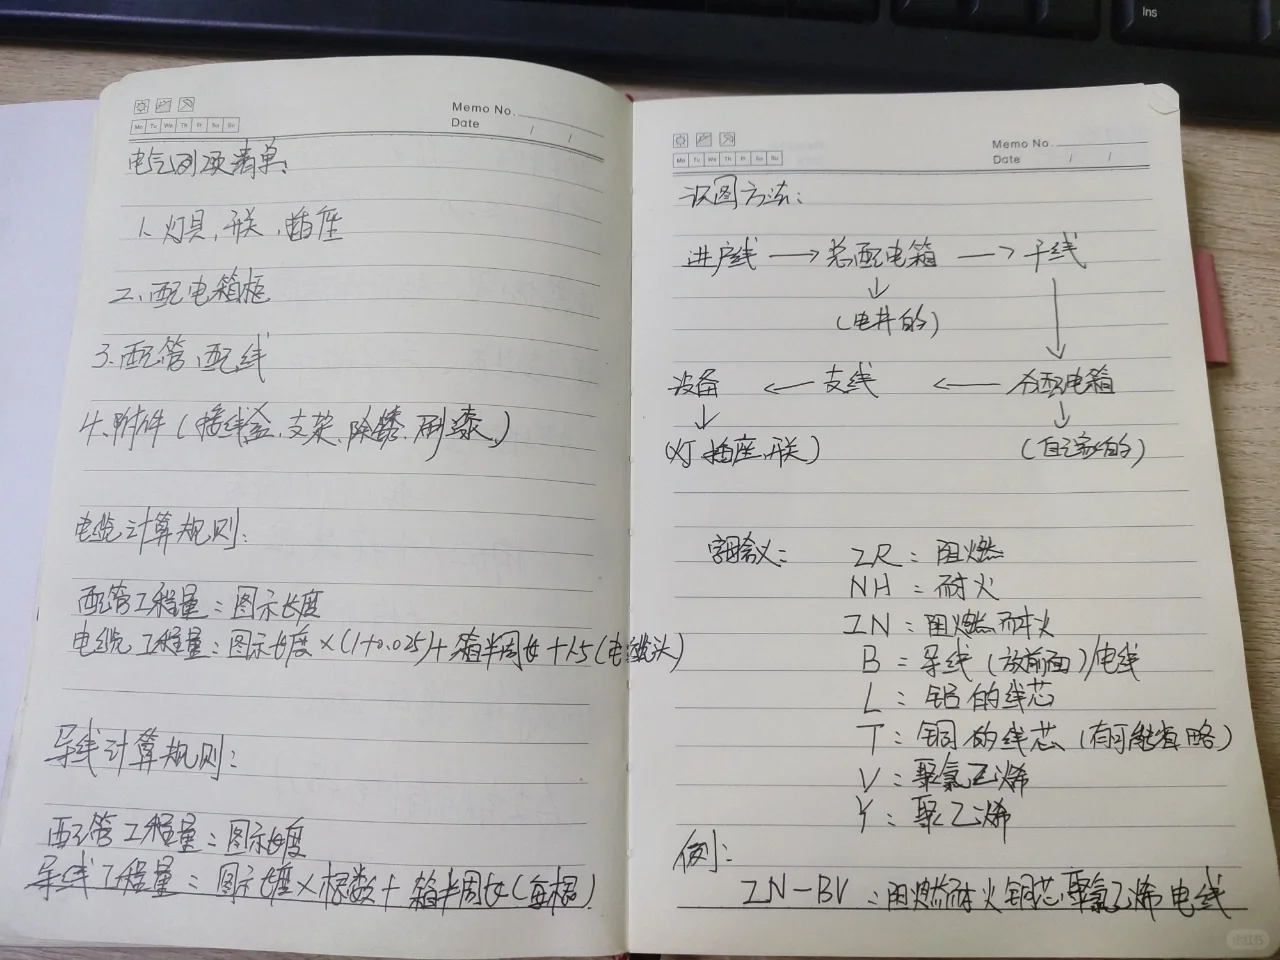 Ins
Memo No.
Date / /
Mo Tu We Th Fr Sa Su
电气列项清单:
1. 灯具, 开关, 插座
2. 配电箱柜
3. 配管、配线
4. 附件(接线盒、支架、除锈、刷漆)
电缆计算规则:
配管工程量:图示长度
电缆工程量:图示长度×(1+0.025)+箱半周长+1.5(电缆头)
导线计算规则:
配管工程量:图示长度
导线工程量:图示长度×根数+箱半周长(每根)
Memo No.
Date / /
Mo Tu We Th Fr Sa Su
识图方法:
进户线 → 总配电箱 → 干线
↓
(电井的)
↓
设备 ← 支线 ← 分配电箱
↓ ↓
(灯、插座、开关) (自家的)
字母含义: ZR:阻燃
NH:耐火
ZN:阻燃耐火
B:导线(放前面)/电线
L:铝的线芯
T:铜的线芯(有可能省略)
V:聚氯乙烯
Y:聚乙烯
例:
ZN-BV:阻燃耐火铜芯聚氯乙烯电线
小红书